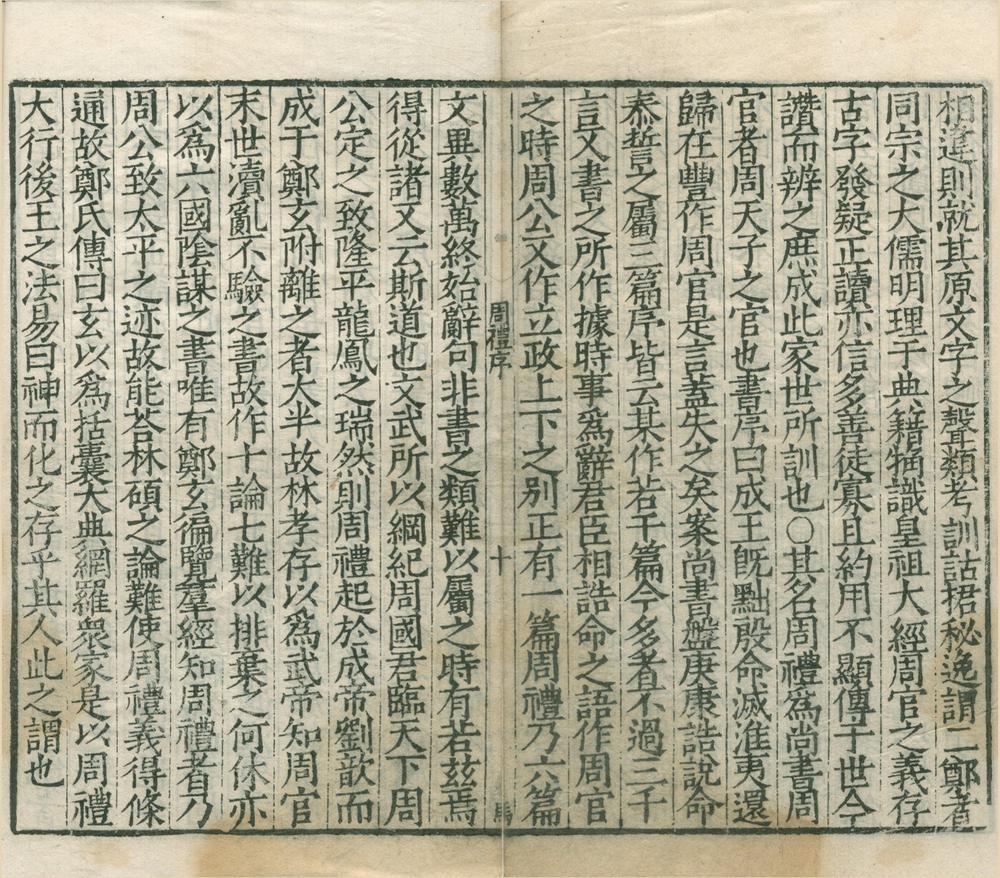 相違則就其原文字之聲類考訓詁捃秘逸謂二鄭者
同宗之大儒明理于典籍牠識皇祖大經周官之義存
古字發疑正讀亦信多善徒寡且約用不顯傳于世今
讚而辨之庶成此家世所訓也○其名周禮為尚書周
官者周天子之官也書序曰成王既黜殷命滅淮夷還
歸在豐作周官是言蓋失之矣案尚書盤庚康誥說命
泰誓之屬三篇序皆云某作若干篇今多者不過三千
言又書之所作據時事為辭君臣相誥命之語作周官
之時周公又作立政上下之別正有一篇周禮乃六篇
周禮序
十
文異數萬終始辭句非書之類難以屬之時有若茲焉
得從諸又云斯道也文武所以綱紀周國君臨天下周
公定之致隆平龍鳳之瑞然則周禮起於成帝劉歆而
成于鄭玄附離之者大半故林孝存以為武帝知周官
末世瀆亂不驗之書故作十論七難以排棄之何休亦
以為六國陰謀之書唯有鄭玄徧覽羣經知周禮者乃
周公致太平之迹故能荅林碩之論難使周禮義得條
通故鄭氏傳曰玄以為括囊大典網羅衆家是以周禮
大行後王之法易曰神而化之存乎其人此之謂也